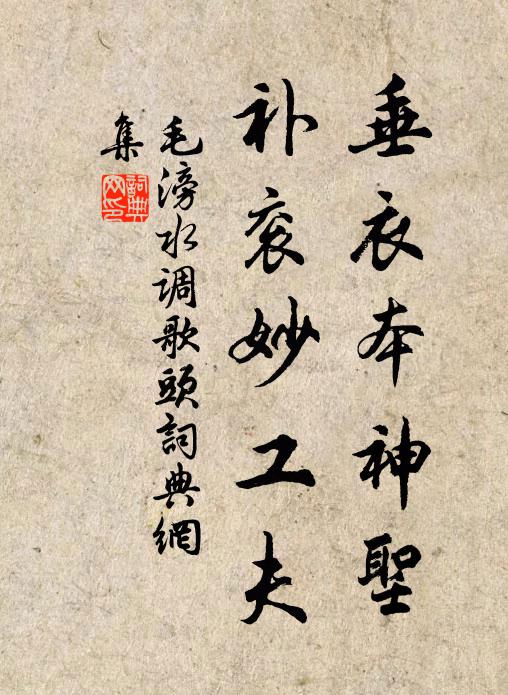 垂衣本神聖
补衮妙工夫
毛滂水调歌頭詞典網
集
詞典网印